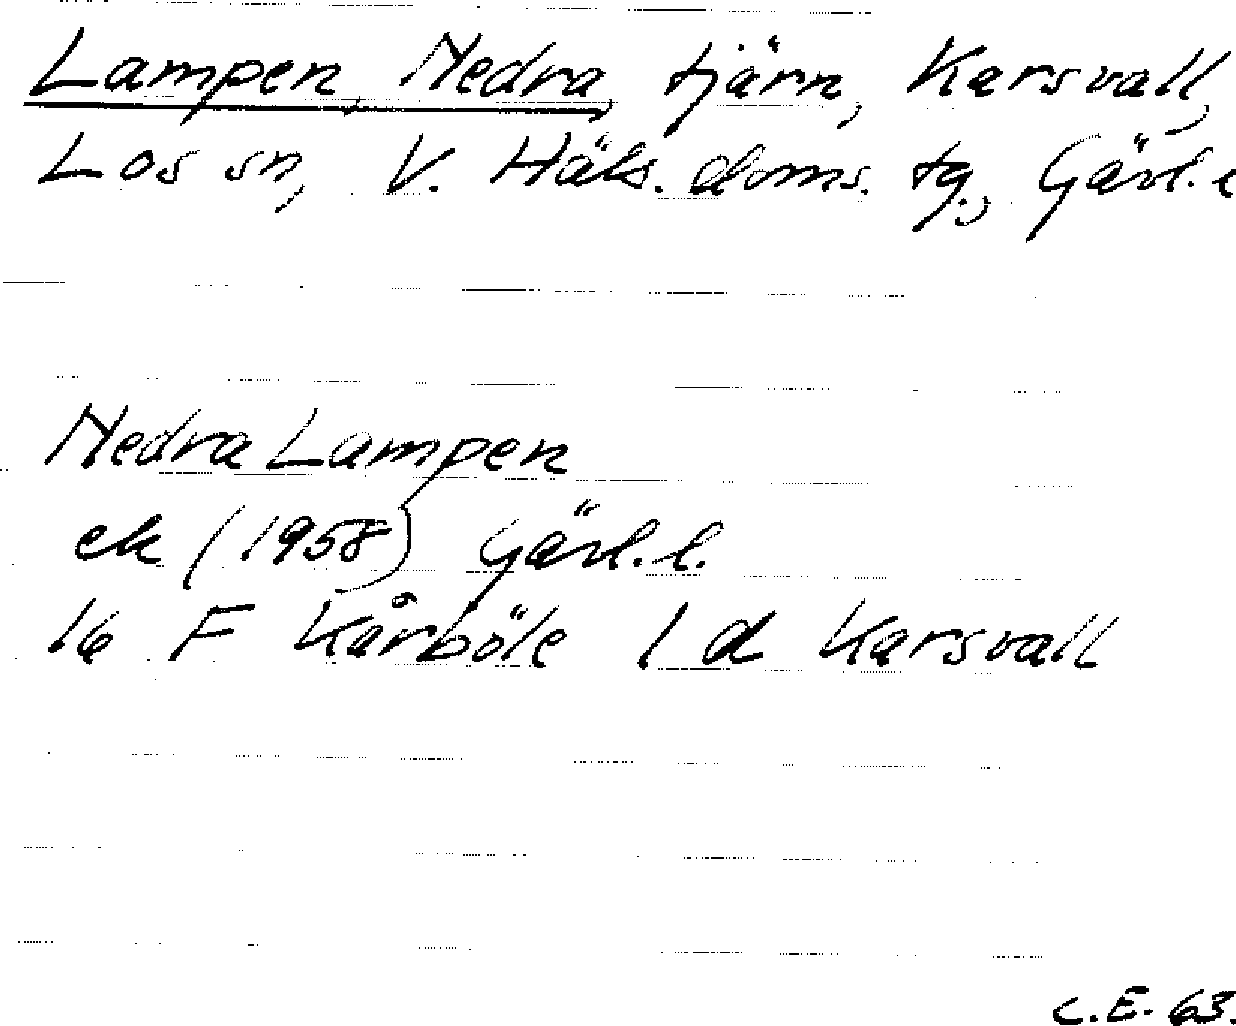 Lampen, Nedra, tjärn, Karsvall,
Los sn, V. Häls. doms. tg., Gävl. l
Nedra Lampen
ek (1958) Gävl. l.
16 F Kårböle 1 d Karsvall
C.E. 63.